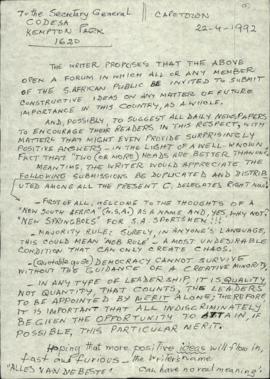 To the Secretary General
CODESA
KEMPTON PARK
1620
CAPETOWN
22-4-1992
THE WRITER PROPOSES THAT THE ABOVE
OPEN A FORUM IN WHICH ALL OR ANY MEMBER
OF THE S.AFRICAN PUBLIC BE INVITED TO SUBMIT
CONSTRUCTIVE IDEAS ON ANY MATTER OF FUTURE
IMPORTANCE IN THIS COUNTRY, AS A WHOLE.
AND, POSSIBLY, TO SUGGEST ALL DAILY NEWSPAPERS
TO ENCOURAGE THEIR READERS IN THIS RESPECT, WITH
MATTERS THAT MIGHT EVEN PROVIDE SURPRISINGLY
POSITIVE ANSWERS – IN THE LIGHT OF A WELL-KNOWN
FACT THAT TWO (OR MORE) HEADS ARE BETTER THAN ONE.
MEANTIME, THE WRITER WOULD APPRECIATE THE
FOLLOWING SUBMISSIONS BE DUPLICATED AND DISTRIB-
UTED AMONG ALL THE PRESENT C. DELEGATES RIGHT NOW:
– FIRST OF ALL, WELCOME TO THE THOUGHTS OF A
"NEW SOUTH AFRICA" (N.S.A.) AS A NAME AND, YES, WHY NOT,
"NEW SPRINGBOKS" FOR S.A. SPORTSMEN!!!
– MAJORITY RULE; SURELY, IN ANYONE'S LANGUAGE,
THIS COULD MEAN "MOB RULE" – A MOST UNDESIRABLE
CONDITION THAT CAN ONLY CREATE CHAOS.
– (Quotable quote) DEMOCRACY CANNOT SURVIVE
WITHOUT THE GUIDANCE OF A CREATIVE MINORITY.
– IN ANY TYPE OF LEADERSHIP, IT IS QUALITY,
NOT QUANTITY, THAT COUNTS, THE LEADERS
TO BE APPOINTED BY MERIT ALONE; THEREFORE
IT IS IMPORTANT THAT ALL INDISCRIMINATELY
BE GIVEN THE OPPORTUNITY TO ATTAIN, IF
POSSIBLE, THIS PARTICULAR MERIT.
Hoping that more positive ideas will flow in,
fast and furious – the writer's name
"ALLES VAN DIE BESTE!" can have no real meaning.